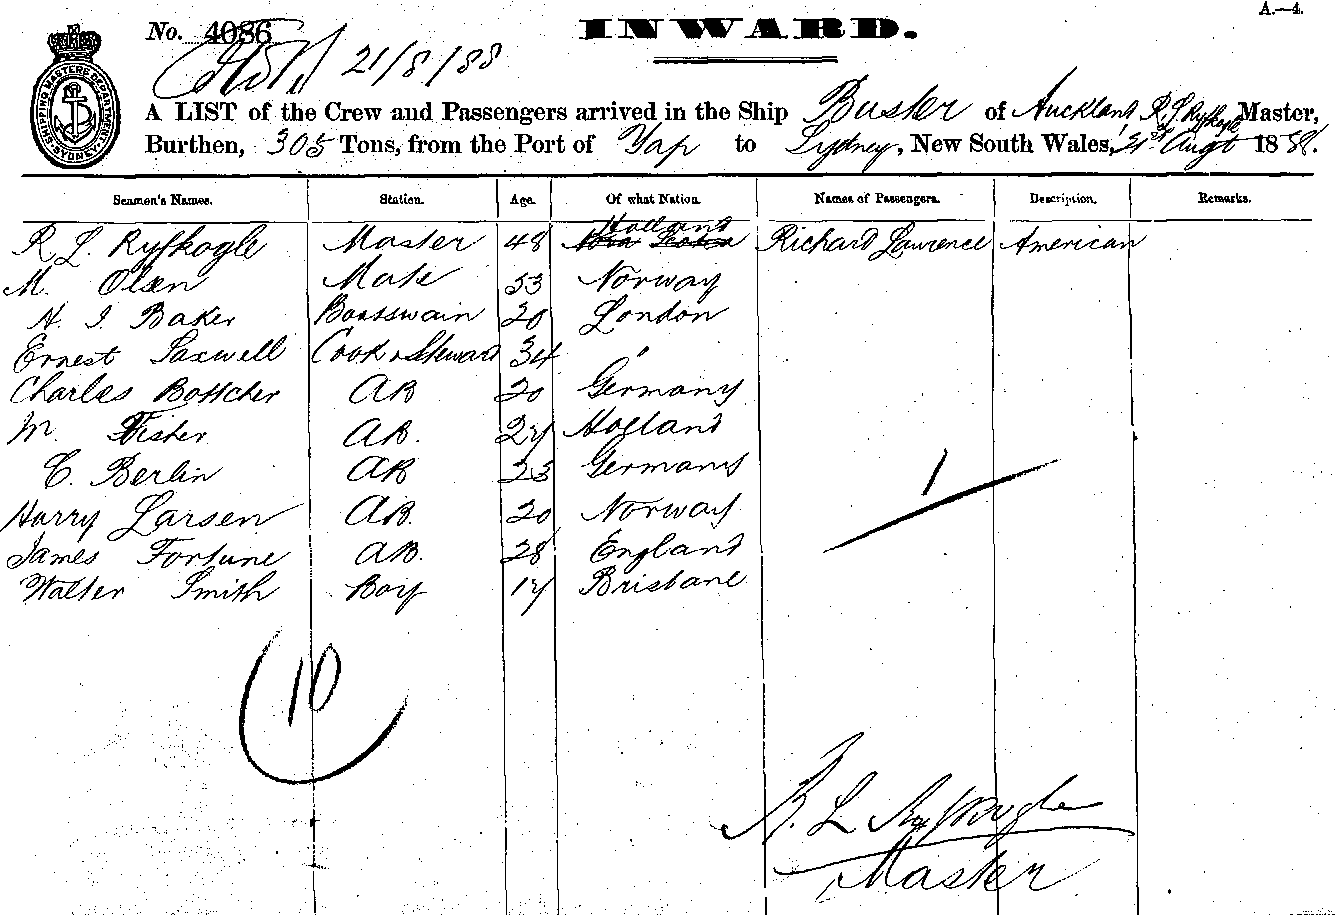 A.—4.
No. 4086 INWARD.
21/8/88
SHIPPING MASTERS DEPARTMENT SYDNEY
A LIST of the Crew and Passengers arrived in the Ship Buster of Auckland R. L. Ryskogle Master,
Burthen, 305 Tons, from the Port of Yap to Sydney, New South Wales, 21st Augt 1888.
Seamen's Names. Station. Age. Of what Nation. Names of Passengers. Description. Remarks.
R L Ryskogle Master 48 Holland Richard Lawrence American
M. Olsen Mate 53 Norway
H. I. Baker Boasswain 20 London
Ernest Saxwell Cook & Steward 34 "
Charles Bottcher AB 20 Germany
M. Fisher AB. 27 Hogland
C. Berlin AB 23 Germany
Harry Larsen AB. 20 Norway
James Fortune AB. 28 England
Walter Smith Boy 17 Brisbane
1
10
R. L Ryskogle
Master